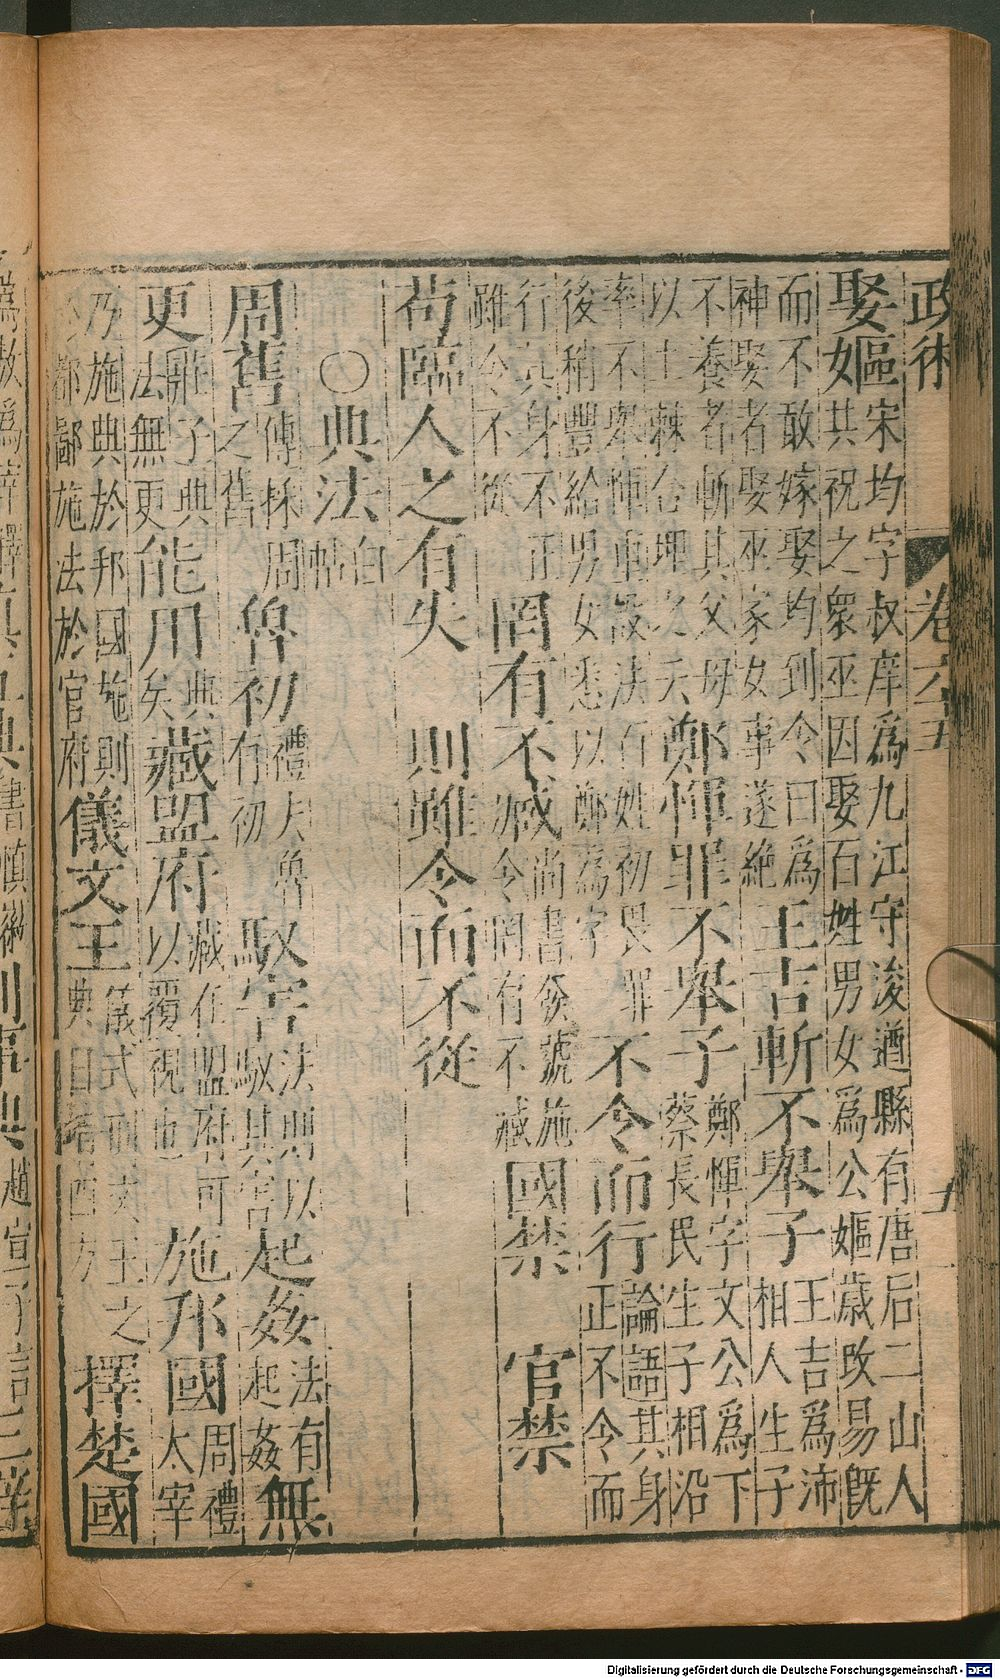 政術 卷六十五
娶嫗宋均字叔庠爲九江守浚遒縣有唐后二山人
共祝之衆巫因娶百姓男女爲公嫗歲改易旣
而不敢嫁娶均到令曰爲
神娶者娶巫家女事遂絶王吉斬不舉子王吉爲沛
相人生子
不養者斬其父母
以土棘合埋之夫鄭惲罪不舉子鄭惲字文公爲下
蔡長民生子相沿
率不舉惲重設法百姓初畏罪
後稍豐給男女悉以鄭爲字不令而行論語其身
正不令而
行其身不正
雖令不從罔有不臧尚書發號施
令罔有不臧國禁 官禁
苟臨人之有失 則雖令而不從
○典法白
帖
周舊傳採周
之舊魯初禮夫魯
有初馭官法則以
馭其官起姦法有
起姦無
更莊子典
法無更能用典
矣藏盟府藏在盟府可
以覆視也施邦國周禮
太宰
乃施典於邦國施則
都鄙施法於官府儀文王儀式刑文王之
典日靖四方擇楚國
Digitalisierung gefördert durch die Deutsche Forschungsgemeinschaft - DFG